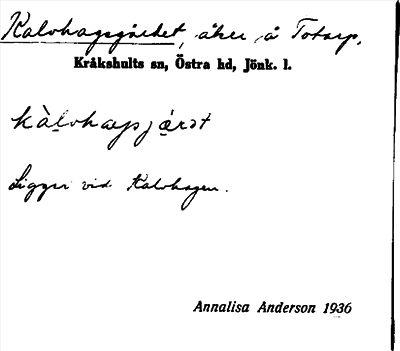 Kalvhagsgärdet, åker å Totarp.
Kråkshults sn, Östra hd, Jönk. l.
kàlvhaγsjǻrət
Ligger vid Kalvhagen.
Annalisa Anderson 1936